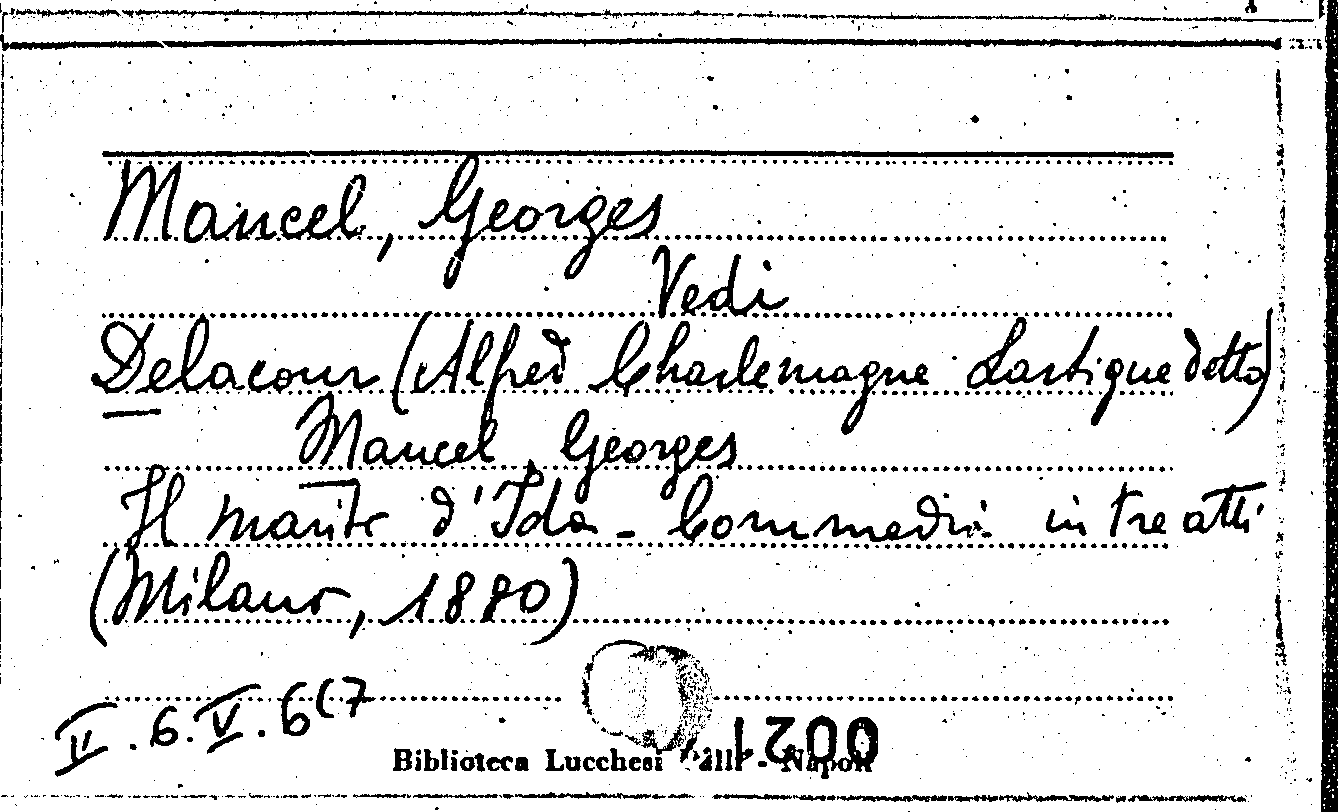 Mancel, Georges
Vedi
Delacour (Alfred Charlemagne Lartigue detto)
Mancel, Georges
Il marito d'Ida - Commedia in tre atti
(Milano, 1880)
II.6.V.6(7
0021
Biblioteca Lucchesi Palli - Napoli